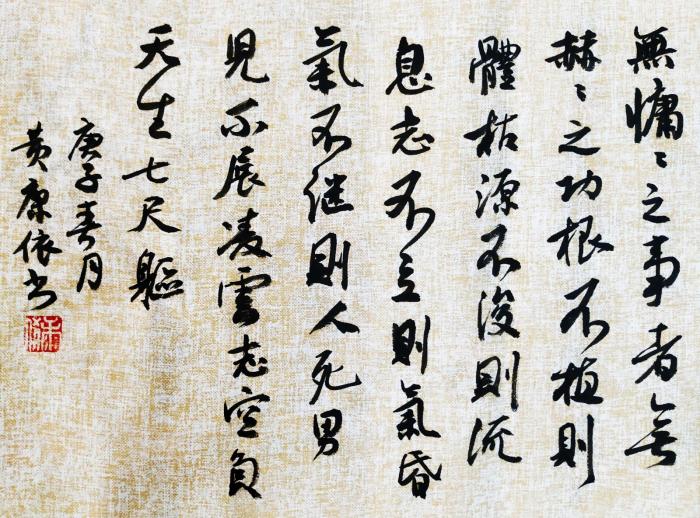 無慵〻之事者無
赫〻之功根不植則
體枯源不浚則流
息志不立則氣昏
氣不继則人死男
見不展凌雲志空負
天生七尺軀
庚子春月
黄康依书